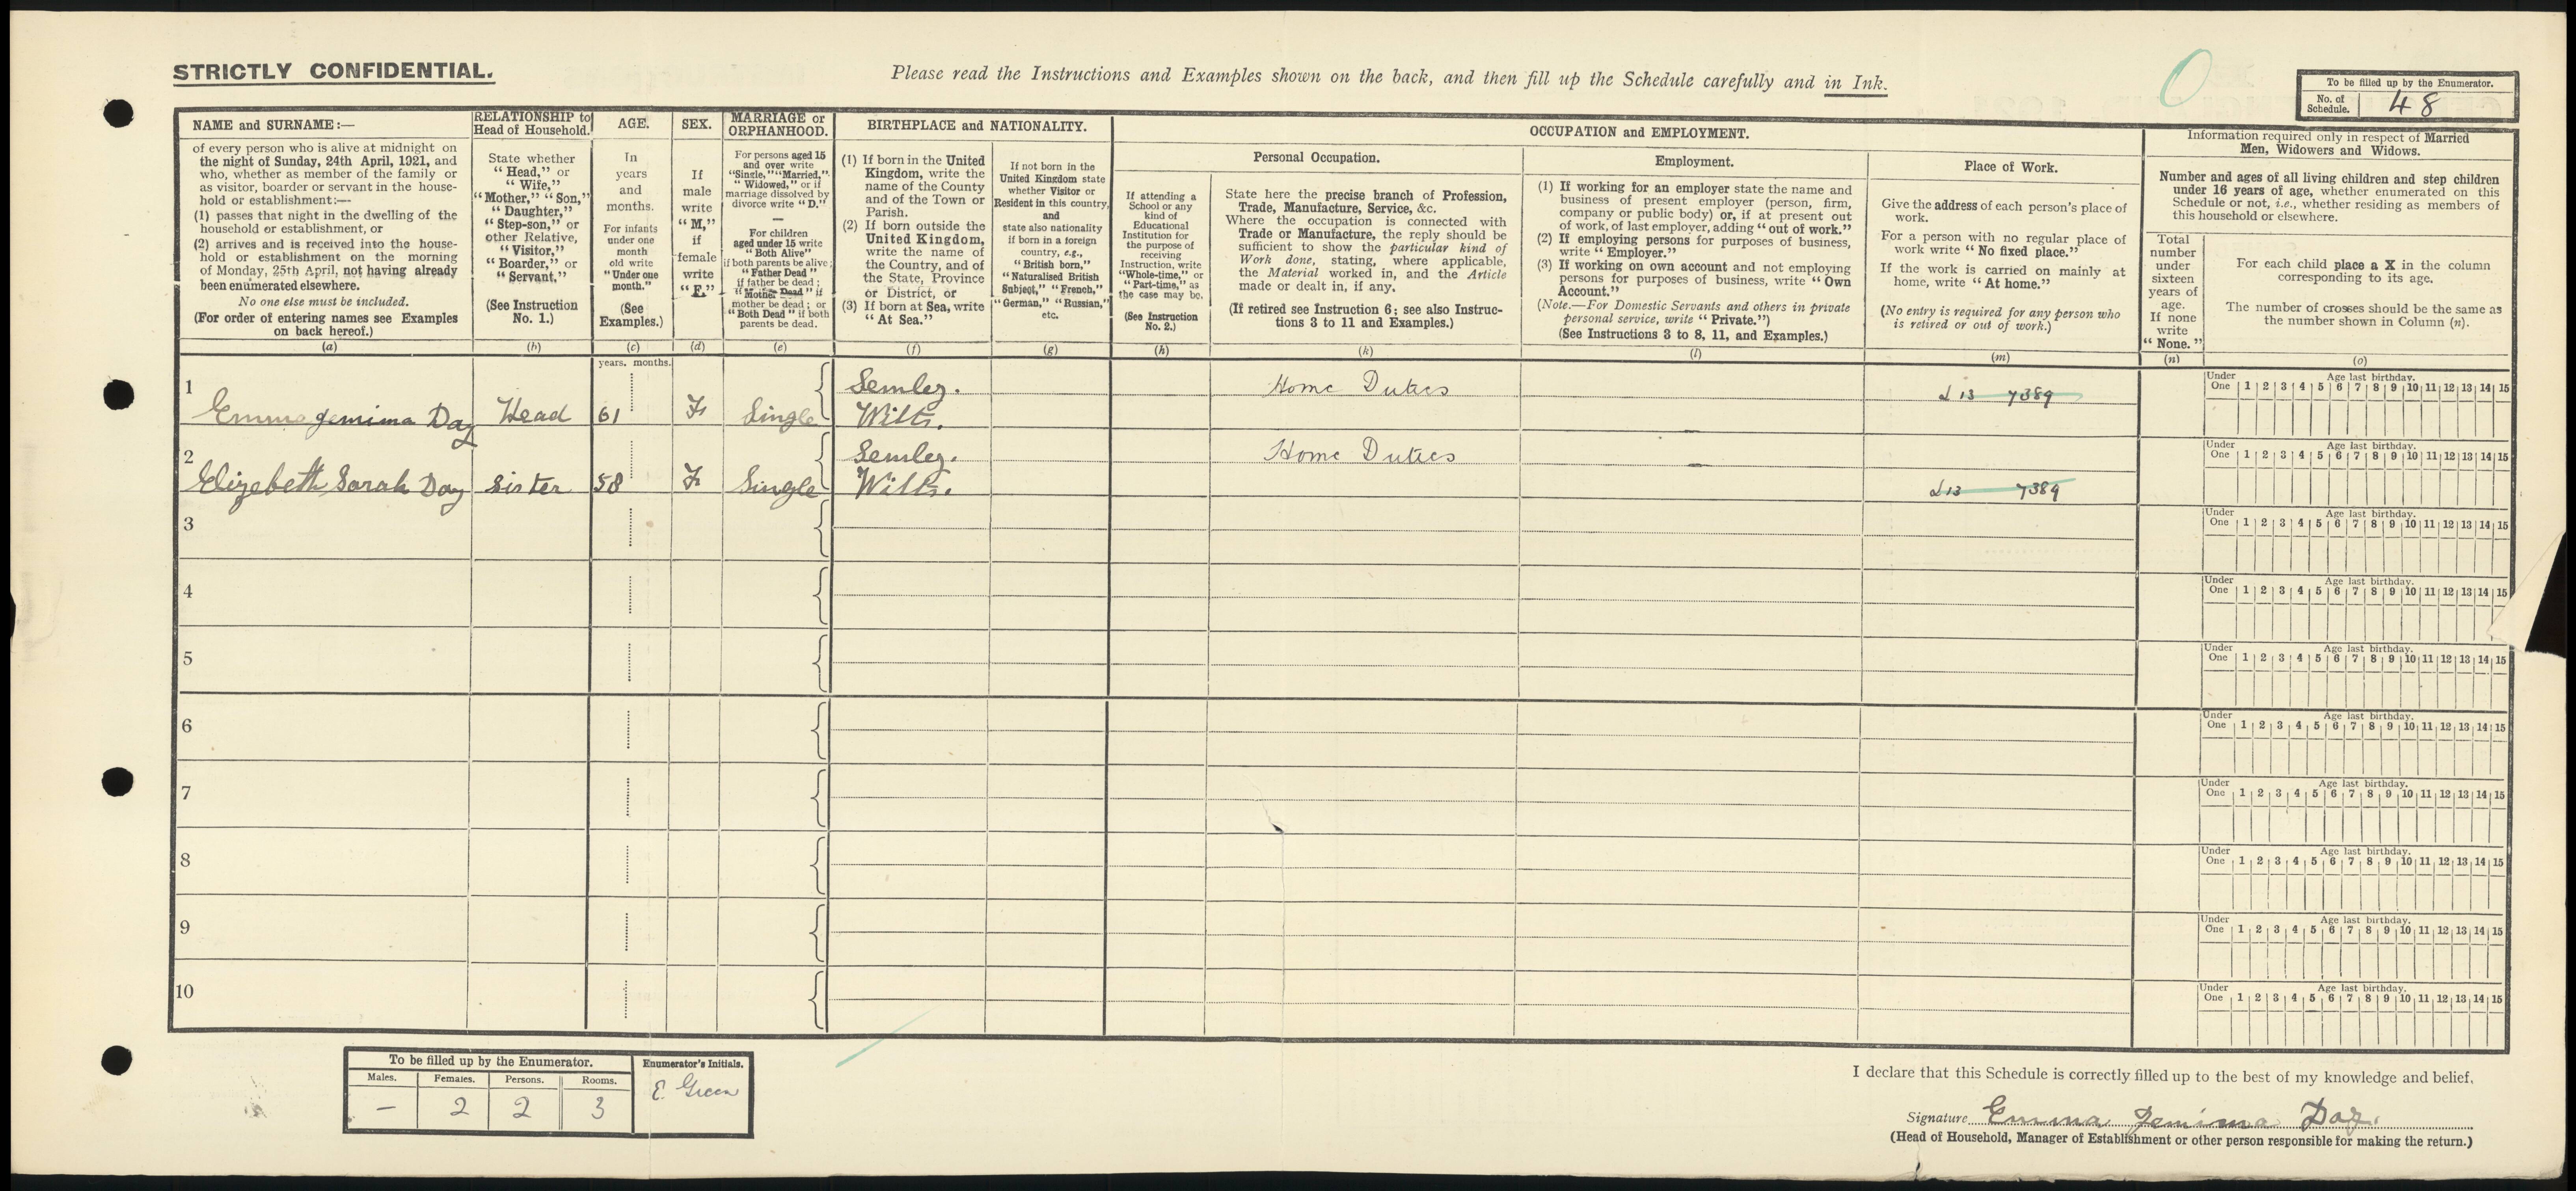 STRICTLY CONFIDENTIAL.
Please read the Instructions and Examples shown on the back, and then fill up the Schedule carefully and in Ink.
To be filled up by the Enumerator.
No. of Schedule. 48
NAME and SURNAME:—
of every person who is alive at midnight on
the night of Sunday, 24th April, 1921, and
who, whether as member of the family or
as visitor, boarder or servant in the house-
hold or establishment:—
(1) passes that night in the dwelling of the
household or establishment, or
(2) arrives and is received into the house-
hold or establishment on the morning
of Monday, 25th April, not having already
been enumerated elsewhere.
No one else must be included.
(For order of entering names see Examples
on back hereof.)
(a)
RELATIONSHIP to
Head of Household.
State whether
"Head," or
"Wife,"
"Mother," "Son,"
"Daughter,"
"Step-son," or
other Relative,
"Visitor,"
"Boarder," or
"Servant."
(See Instruction
No. 1.)
(b)
AGE.
In
years
and
months.
For infants
under one
month
old write
"Under one
month."
(See
Examples.)
(c)
SEX.
If
male
write
"M,"
if
female
write
"F."
(d)
MARRIAGE or
ORPHANHOOD.
For persons aged 15
and over write
"Single," "Married,"
"Widowed," or if
marriage dissolved by
divorce write "D."
—
For children
aged under 15 write
"Both Alive"
if both parents be alive;
"Father Dead"
if father be dead;
"Mother Dead" if
mother be dead; or
"Both Dead" if both
parents be dead.
(e)
BIRTHPLACE and NATIONALITY.
(1) If born in the United
Kingdom, write the
name of the County
and of the Town or
Parish.
(2) If born outside the
United Kingdom,
write the name of
the Country, and of
the State, Province
or District, or
(3) If born at Sea, write
"At Sea."
(f)
If not born in the
United Kingdom state
whether Visitor or
Resident in this country,
and
state also nationality
if born in a foreign
country, e.g.,
"British born,"
"Naturalised British
Subject," "French,"
"German," "Russian,"
etc.
(g)
OCCUPATION and EMPLOYMENT.
Personal Occupation.
If attending a
School or any
kind of
Educational
Institution for
the purpose of
receiving
Instruction, write
"Whole-time," or
"Part-time," as
the case may be.
(See Instruction
No. 2.)
(h)
State here the precise branch of Profession,
Trade, Manufacture, Service, &c.
Where the occupation is connected with
Trade or Manufacture, the reply should be
sufficient to show the particular kind of
Work done, stating, where applicable,
the Material worked in, and the Article
made or dealt in, if any.
(If retired see Instruction 6; see also Instruc-
tions 3 to 11 and Examples.)
(k)
Employment.
(1) If working for an employer state the name and
business of present employer (person, firm,
company or public body) or, if at present out
of work, of last employer, adding "out of work."
(2) If employing persons for purposes of business,
write "Employer."
(3) If working on own account and not employing
persons for purposes of business, write "Own
Account."
(Note.—For Domestic Servants and others in private
personal service, write "Private.")
(See Instructions 3 to 8, 11, and Examples.)
(l)
Place of Work.
Give the address of each person's place of
work.
For a person with no regular place of
work write "No fixed place."
If the work is carried on mainly at
home, write "At home."
(No entry is required for any person who
is retired or out of work.)
(m)
Information required only in respect of Married
Men, Widowers and Widows.
Number and ages of all living children and step children
under 16 years of age, whether enumerated on this
Schedule or not, i.e., whether residing as members of
this household or elsewhere.
Total
number
under
sixteen
years of
age.
If none
write
"None."
(n)
For each child place a X in the column
corresponding to its age.
The number of crosses should be the same as
the number shown in Column (n).
(o)
years. months.
1 Emma Jemima Day Head 61 F Single Semley. Wilts. Home Duties — L13 7389
Under One Age last birthday. 1 2 3 4 5 6 7 8 9 10 11 12 13 14 15
2 Elizebeth Sarah Day Sister 58 F Single Semley. Wilts. Home Duties — L13 7389
Under One Age last birthday. 1 2 3 4 5 6 7 8 9 10 11 12 13 14 15
3 Under One Age last birthday. 1 2 3 4 5 6 7 8 9 10 11 12 13 14 15
4 Under One Age last birthday. 1 2 3 4 5 6 7 8 9 10 11 12 13 14 15
5 Under One Age last birthday. 1 2 3 4 5 6 7 8 9 10 11 12 13 14 15
6 Under One Age last birthday. 1 2 3 4 5 6 7 8 9 10 11 12 13 14 15
7 Under One Age last birthday. 1 2 3 4 5 6 7 8 9 10 11 12 13 14 15
8 Under One Age last birthday. 1 2 3 4 5 6 7 8 9 10 11 12 13 14 15
9 Under One Age last birthday. 1 2 3 4 5 6 7 8 9 10 11 12 13 14 15
10 Under One Age last birthday. 1 2 3 4 5 6 7 8 9 10 11 12 13 14 15
To be filled up by the Enumerator.
Males. Females. Persons. Rooms.
— 2 2 3
Enumerator's Initials.
E. Green
I declare that this Schedule is correctly filled up to the best of my knowledge and belief.
Signature Emma Jemima Day.
(Head of Household, Manager of Establishment or other person responsible for making the return.)